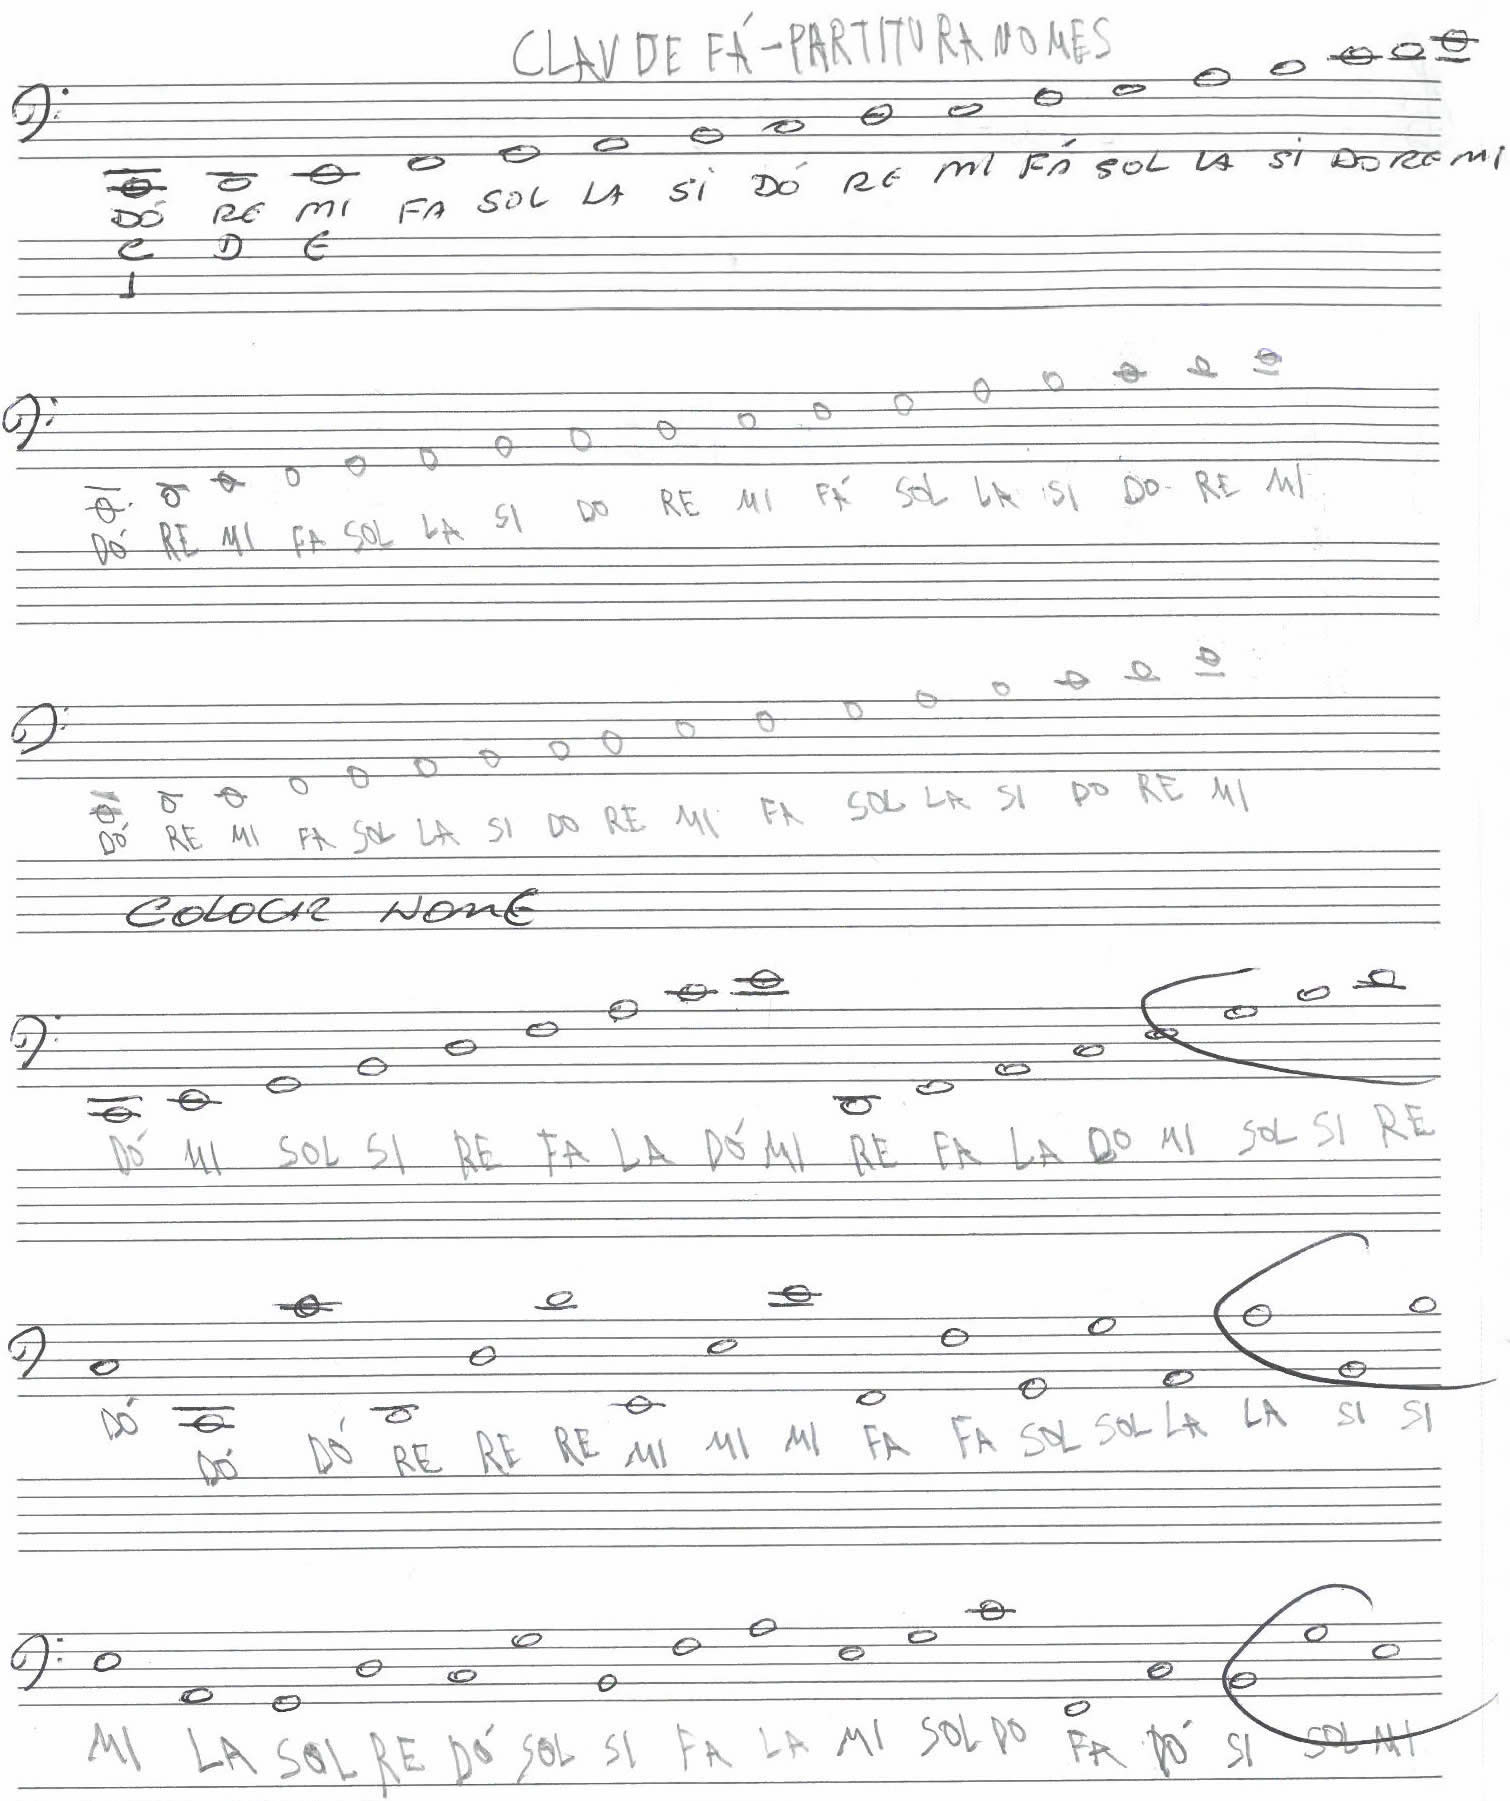 CLAV DE FÁ - PARTITURA NOMES
DÓ RE MI FA SOL LA SI DÓ RE MI FÁ SOL LA SI DO RE MI
C D E
1
DÓ RE MI FA SOL LA SI DO RE MI FÁ SOL LA SI DO RE MI
DÓ RE MI FA SOL LA SI DO RE MI FA SOL LA SI DO RE MI
COLOCAR NOME
DÓ MI SOL SI RE FA LA DÓ MI RE FA LA DO MI SOL SI RE
DÓ DÓ DÓ RE RE RE MI MI MI FA FA SOL SOL LA LA SI SI
MI LA SOL RE DÓ SOL SI FA LA MI SOL DO FA DÓ SI SOL MI